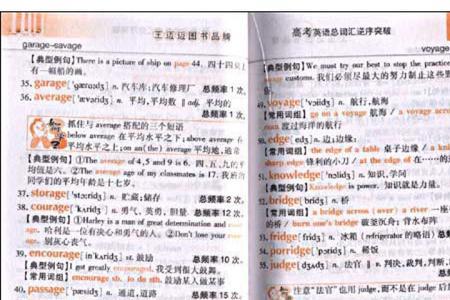 garage-savage
王迈迈图书品牌
【典型例句】There is a picture of ship on page 44. 四十四页上
有一幅船的画。
35. garage['gærɑːdʒ] n. 汽车库;汽车修理厂 总频率 1 次
36. average['ævəridʒ] n. 平均,平均数 ‖ adj. 平均的
抓住与 average 搭配的三个短语
below average 在平均水平之下; above average 在
平均水平之上; on an(the) average 平均地,通常
【典型例句】①The average of 4, 5 and 9 is 6. 四、五、九的平
均值是六。②The average age of my classmates is 17. 我班
同学们的平均年龄是十七岁。
37. storage['stɔːridʒ] n. 贮藏;储存 总频率 2 次
38. courage['kʌridʒ] n. 勇气,勇勇,胆量. 总频率 12 次
【典型例句】①Harley is a man of great determination and
age. 哈利是一位有决心和勇气的人。②Don't lose your
age. 别灰心丧气。
39. encourage[in'kʌridʒ] vt. 鼓励 总频率 10 次
【典型例句】I got greatly encouraged. 我受到很大鼓舞。
【常用词组】encourage sb. to do sth. 鼓励某人做某事
40. passage['pæsidʒ] n. 通道,道路 总频率 15 次
高考英语总词汇逆序突破
voyage
【典型例句】We must try our best to stop the practice
customs. 我们必须尽最大的努力制止这些
voyage['vɔiidʒ] n. 航行,航海
【常用词组】go on a voyage 航海 / a voyage across
渡过海洋的航行
edge[edʒ] n. 边;边缘;
【常用词组】the edge of a table 桌子边缘 / a knife
sharp edge 锋利的小刀 / at the edge of 在……的
knowledge['nɔlidʒ] n. 知识,学问
【典型例句】Knowledge is power. 知识就是力量。
bridge[bridʒ] n. 桥
【常用词组】a bridge across (over) a river 一座
的桥 / burn one's bridge 破釜沉舟;背水布阵
fridge[fridʒ] n. 冰箱 (refrigerator 的略语) 总频
porridge['pɔridʒ] n. 稀饭
judge[dʒʌdʒ] n. 法官 ‖ n. 判决,裁判,判断,
注意“法官”也用 judge,而不是在 judge 后